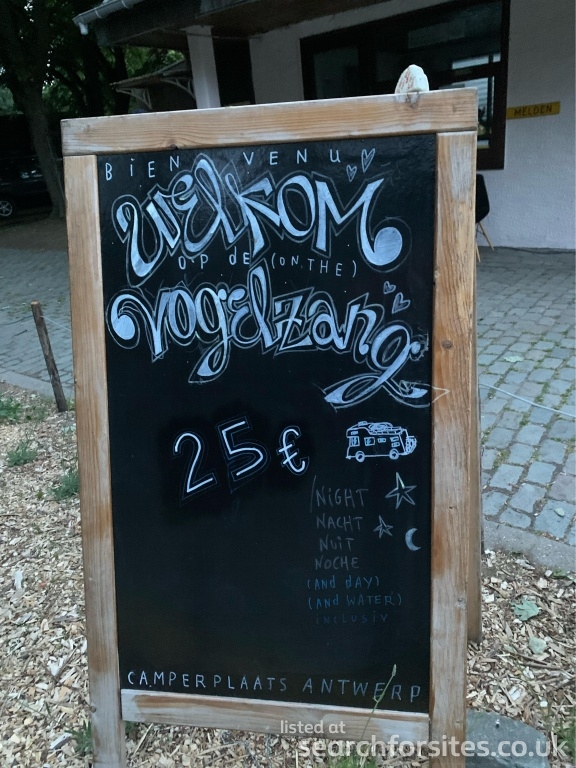 MELDEN
BiEN VENU
WELKOM
OP DE (ON THE)
VOGELZANG
25 €
/NIGHT
NACHT
NUIT
NOCHE
(AND DAY)
(AND WATER)
INCLUSIV
CAMPERPLAATS ANTWERP
listed at
searchforsites.co.uk